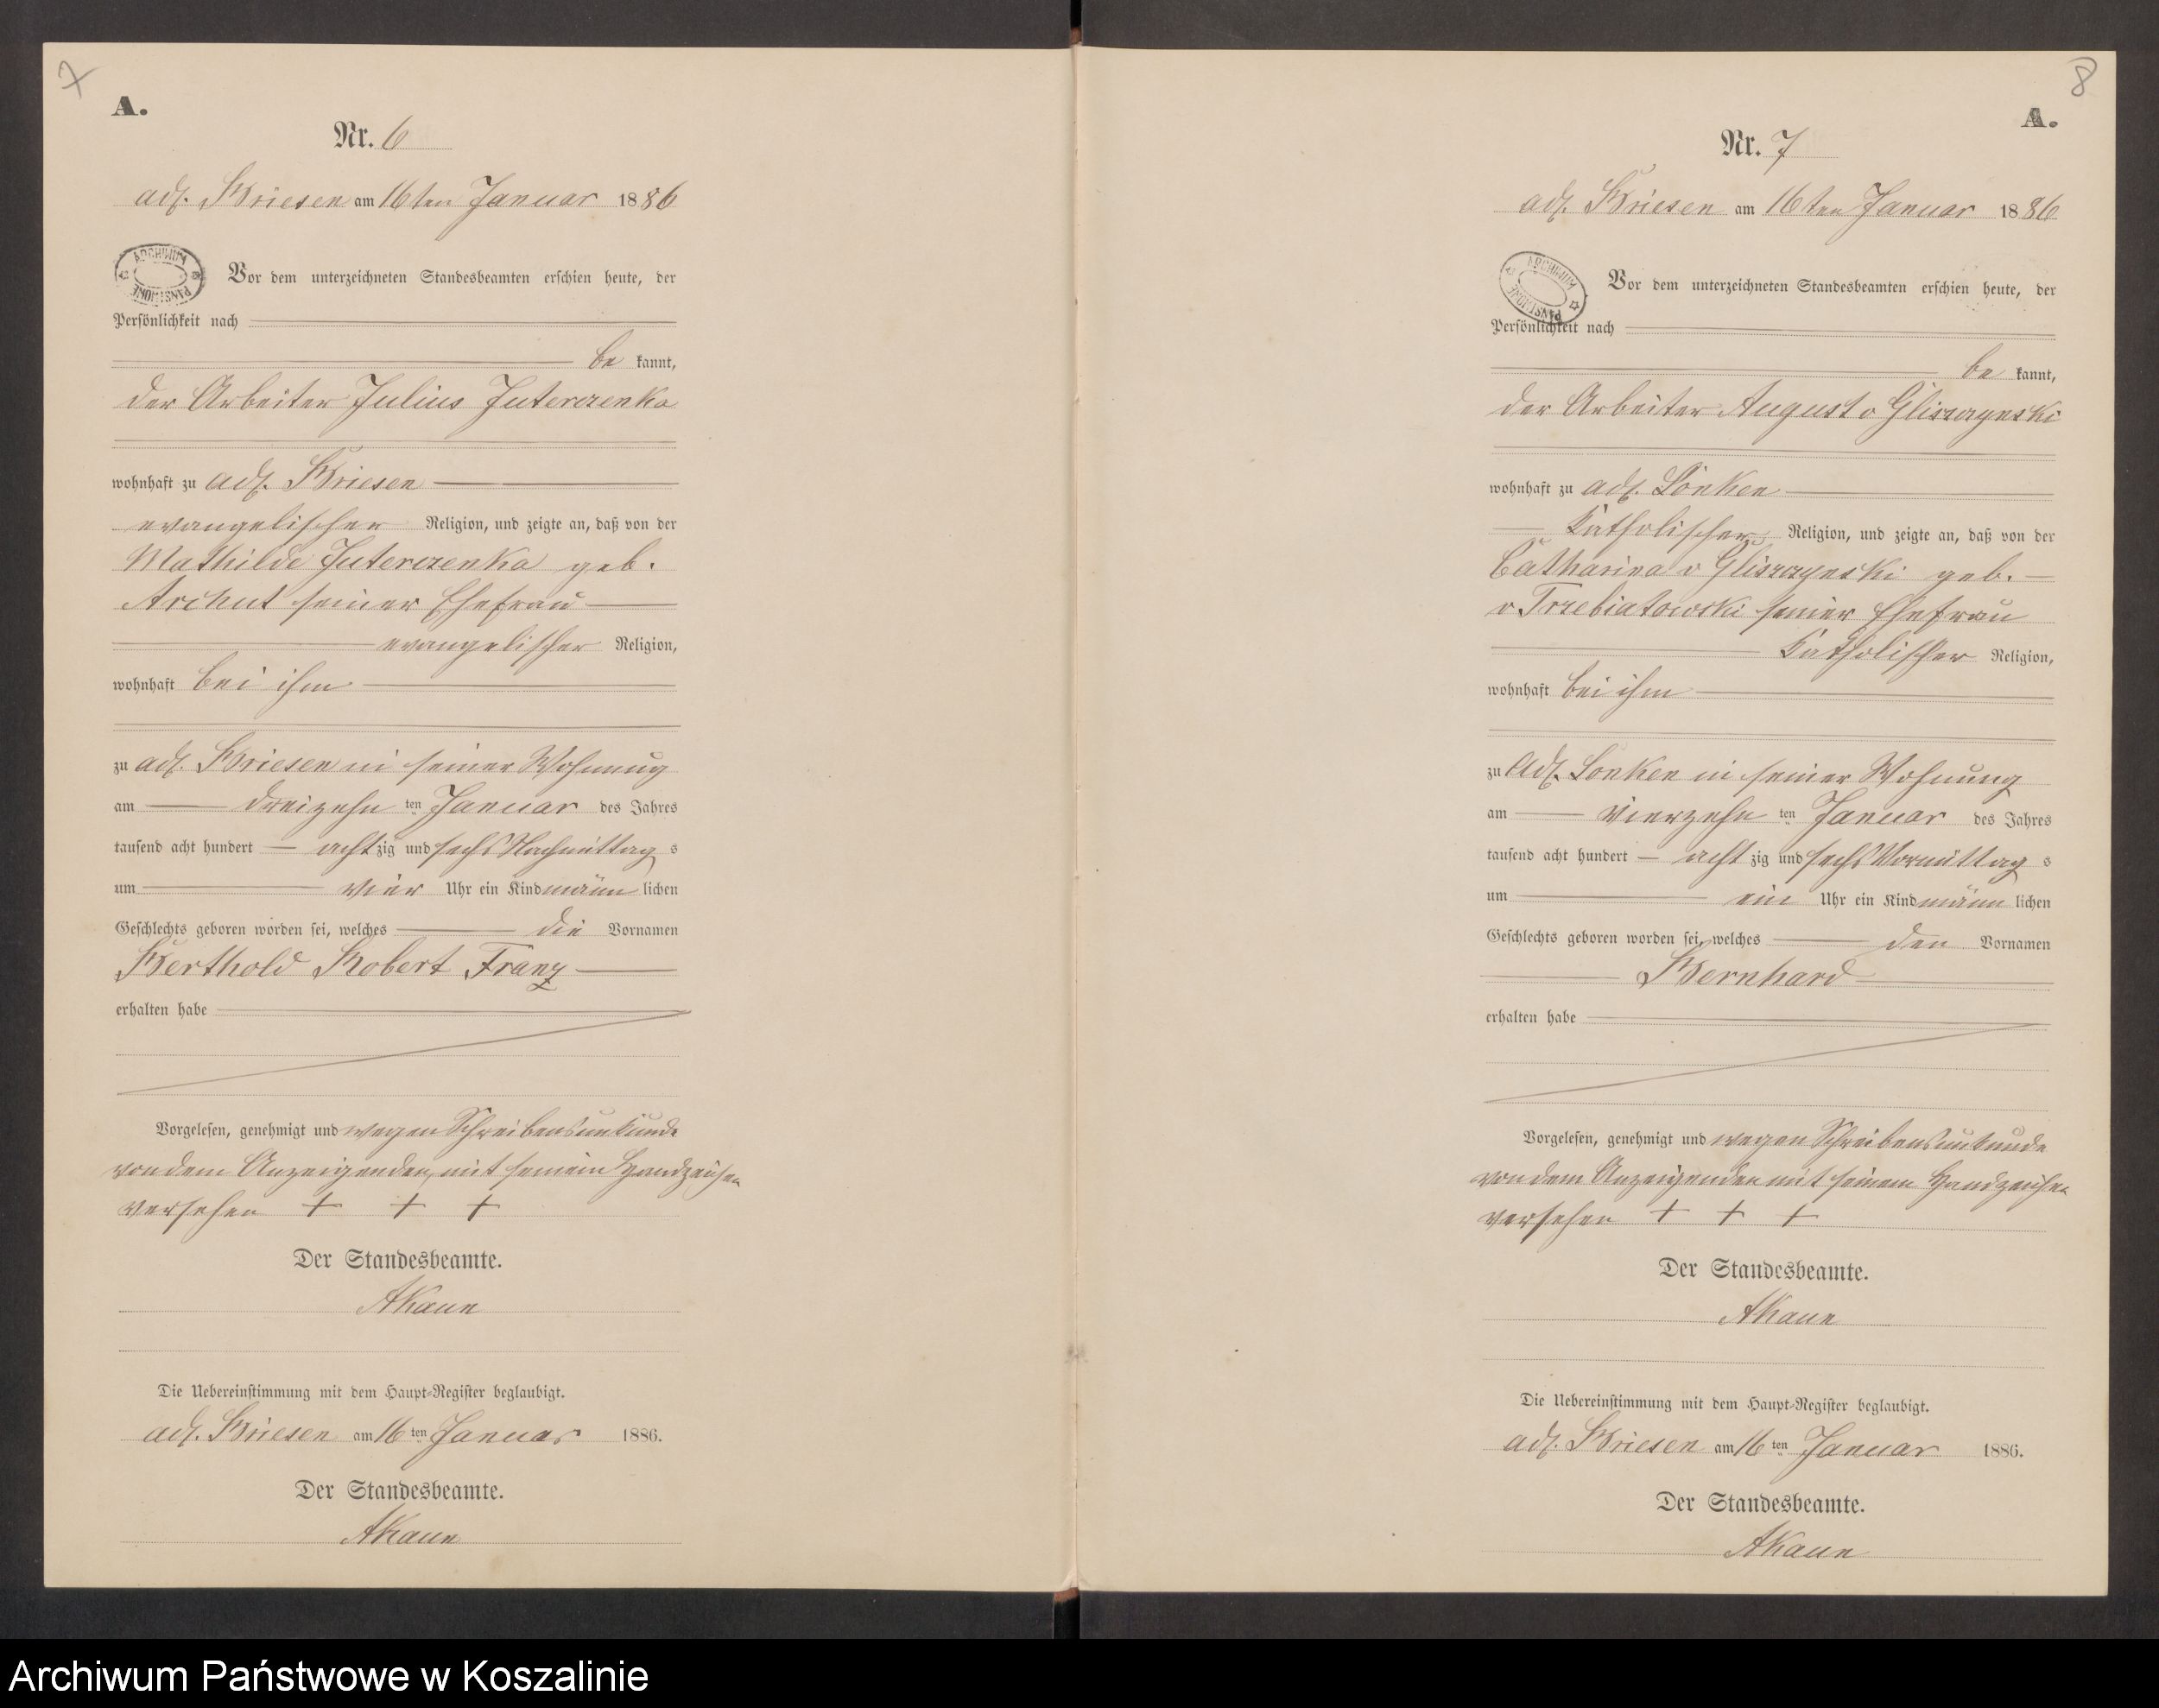 7
A.
Nr. 6
adl. Briesen am 16ten Januar 1886
ARCHIWUM PAŃSTWOWE
Vor dem unterzeichneten Standesbeamten erschien heute, der
Persönlichkeit nach
be kannt,
der Arbeiter Julius Juterczenka
wohnhaft zu adl. Briesen
evangelischer Religion, und zeigte an, daß von der
Mathilde Juterczenka geb.
Archut seiner Ehefrau
evangelischer Religion,
wohnhaft bei ihm
zu adl. Briesen in seiner Wohnung
am dreizehn ten Januar des Jahres
tausend acht hundert acht zig und sechs Nachmittag s
um vier Uhr ein Kind männ lichen
Geschlechts geboren worden sei, welches die Vornamen
Berthold Robert Franz
erhalten habe
Vorgelesen, genehmigt und wegen Schreibensunkunde
von dem Anzeigenden, mit seinem Handzeichen
versehen + + +
Der Standesbeamte.
AKaun
Die Uebereinstimmung mit dem Haupt-Register beglaubigt.
adl. Briesen am 16 ten Januar 1886.
Der Standesbeamte.
AKaun
8
A.
Nr. 7
adl. Briesen am 16ten Januar 1886
ARCHIWUM PAŃSTWOWE
Vor dem unterzeichneten Standesbeamten erschien heute, der
Persönlichkeit nach
be kannt,
der Arbeiter August v Gliszczynski
wohnhaft zu adl. Lonken
katholischer Religion, und zeigte an, daß von der
Catharina v Gliszczynski geb.
v Trzebiatowski seiner Ehefrau
katholischer Religion,
wohnhaft bei ihm
zu Adl. Lonken in seiner Wohnung
am vierzehn ten Januar des Jahres
tausend acht hundert acht zig und sechs Vormittag s
um ein Uhr ein Kind männ lichen
Geschlechts geboren worden sei, welches den Vornamen
Bernhard
erhalten habe
Vorgelesen, genehmigt und wegen Schreibensunkunde
von dem Anzeigenden mit seinem Handzeichen
versehen + + +
Der Standesbeamte.
AKaun
Die Uebereinstimmung mit dem Haupt-Register beglaubigt.
adl. Briesen am 16 ten Januar 1886.
Der Standesbeamte.
AKaun
Archiwum Państwowe w Koszalinie